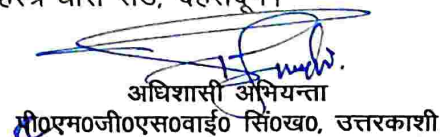 धारा रोड, देहरादून।
अधिशासी अभियन्ता
पी०एम०जी०एस०वाई० सिं०ख०, उत्तरकाशी